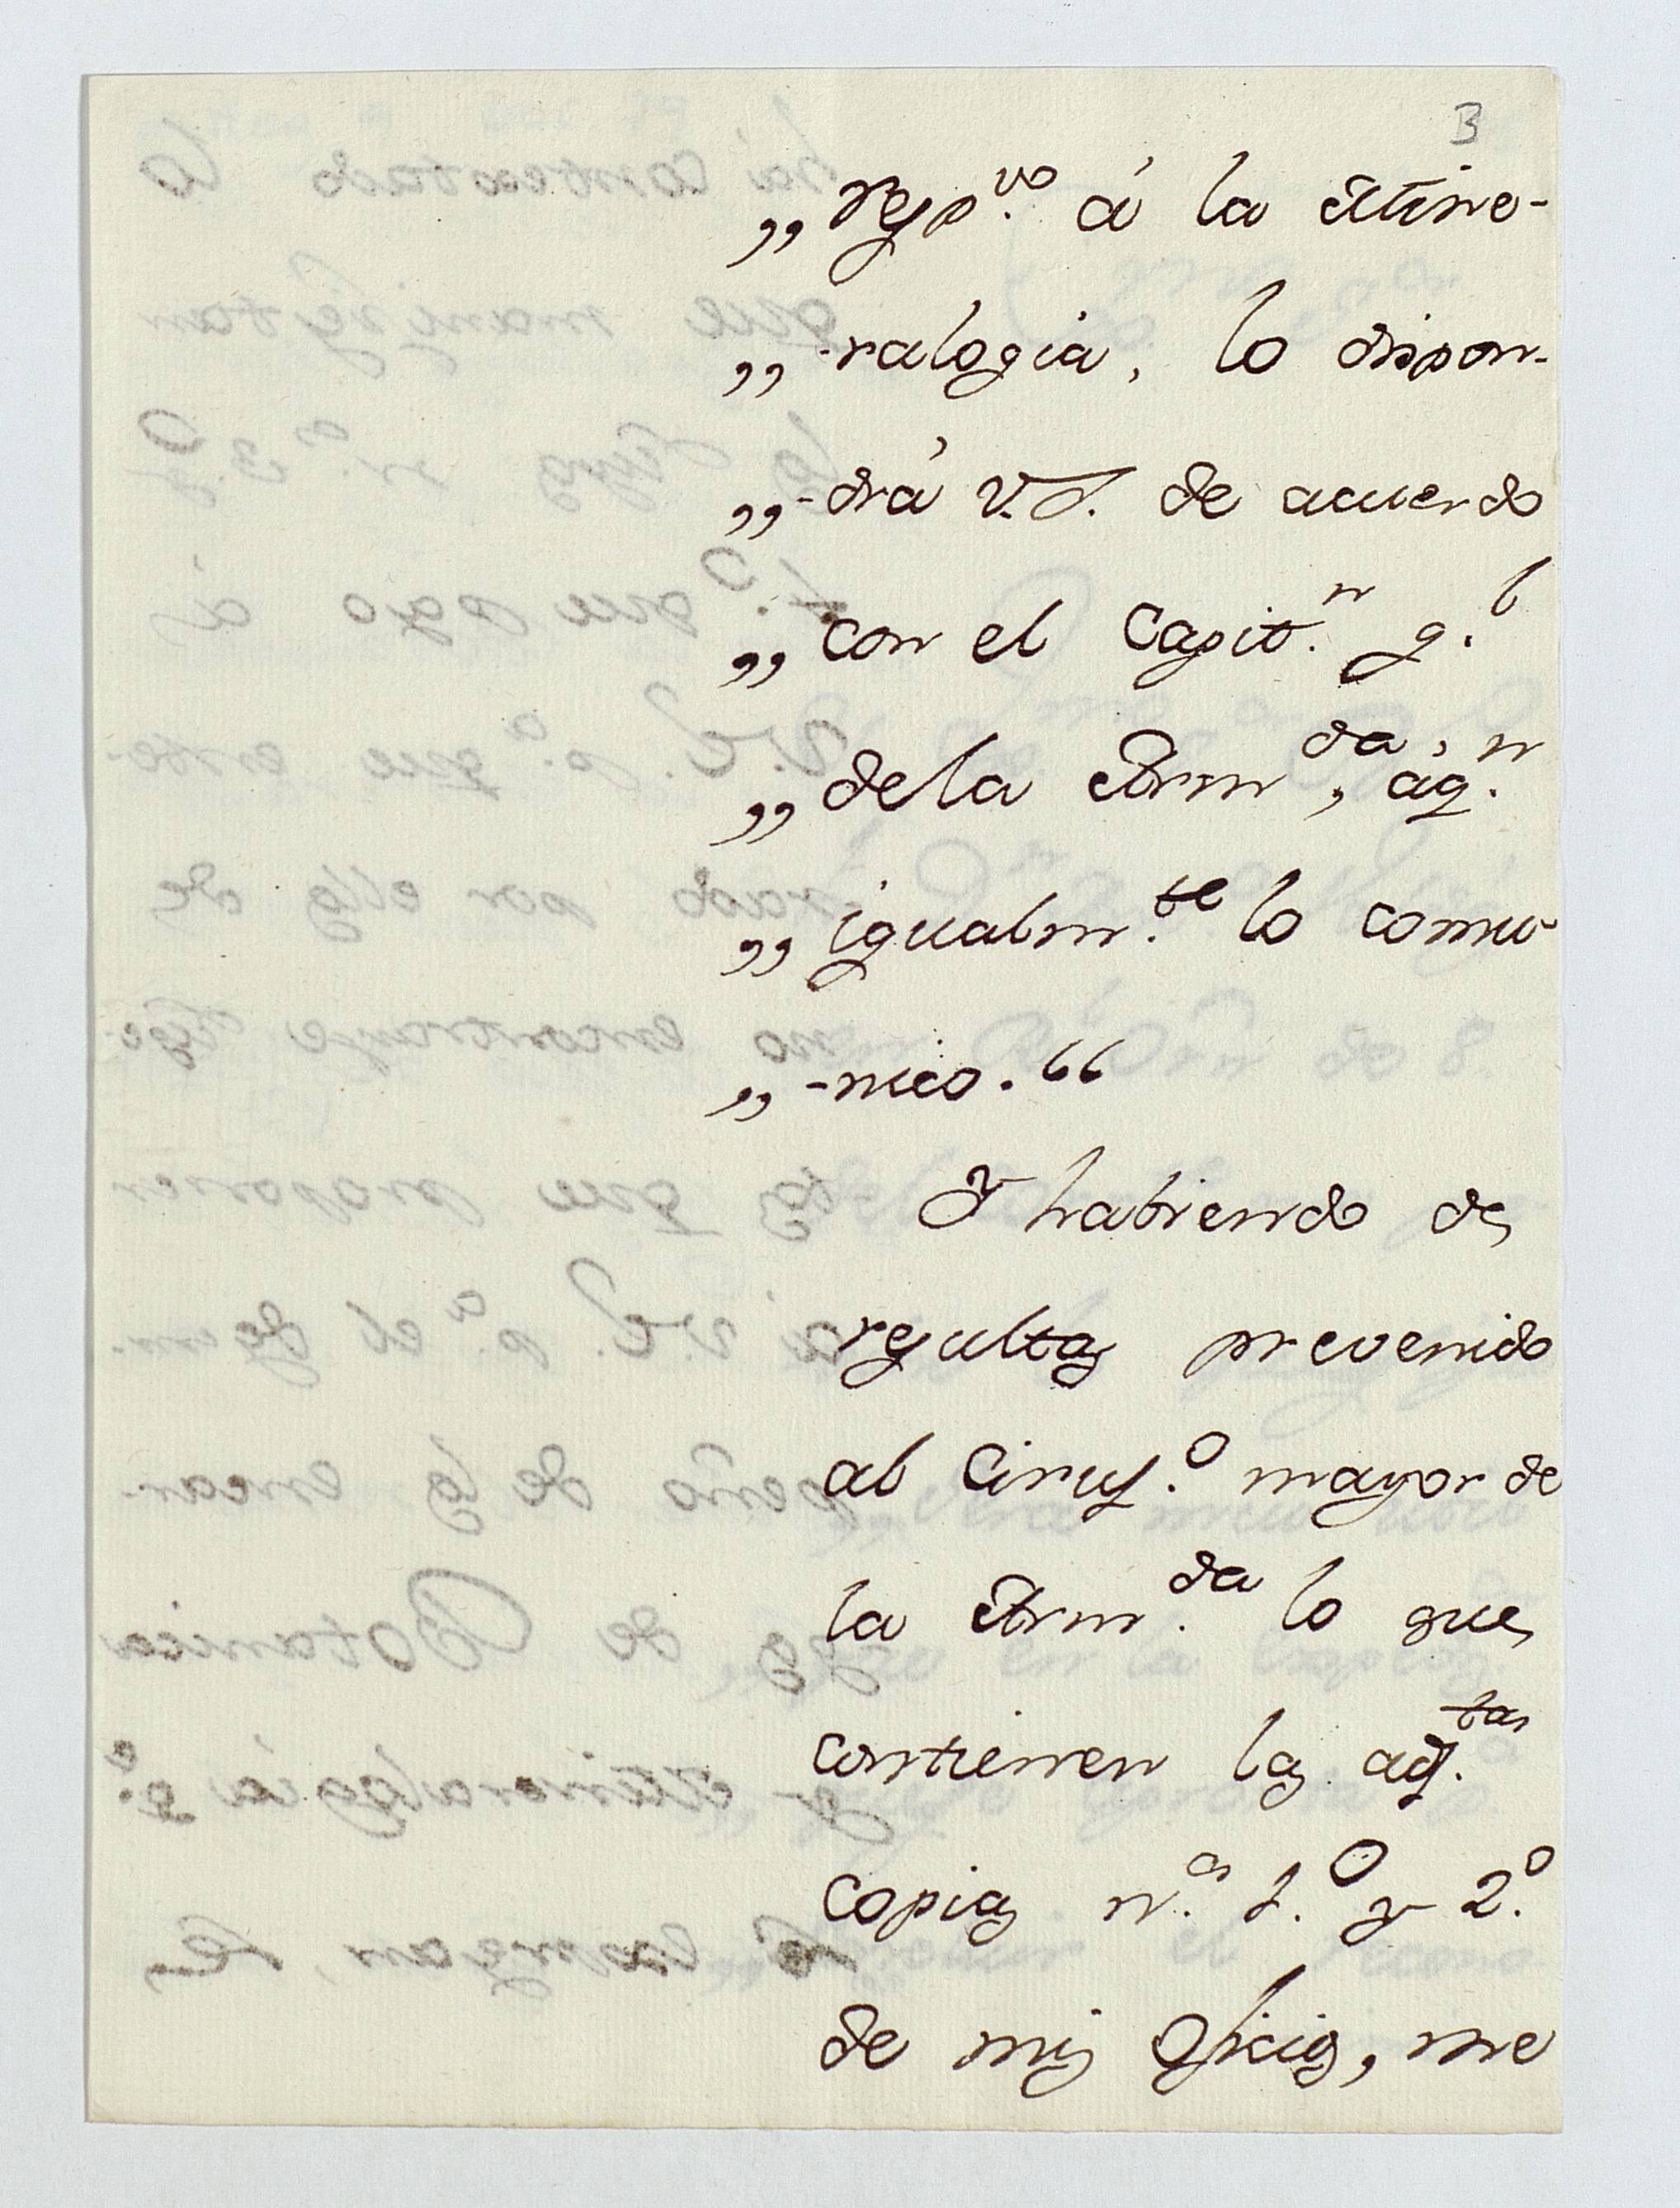 3
„ resp.vo á la Mine-
„ -ralogia, lo dispon-
„ -drá V.S. de acuerdo
„ con el Capit.n g.l
„ de la Arm.da, aq.n
„ igualm.te lo comu-
„ -nico.“
Y habiendo de
resultas prevenido
al Ciruj.o mayor de
la Arm.da lo que
contienen las adj.tas
copias n.os 1.o y 2.o
de mis Oficios, me